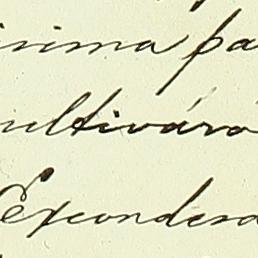 isima pa
ultivára
Excondesa